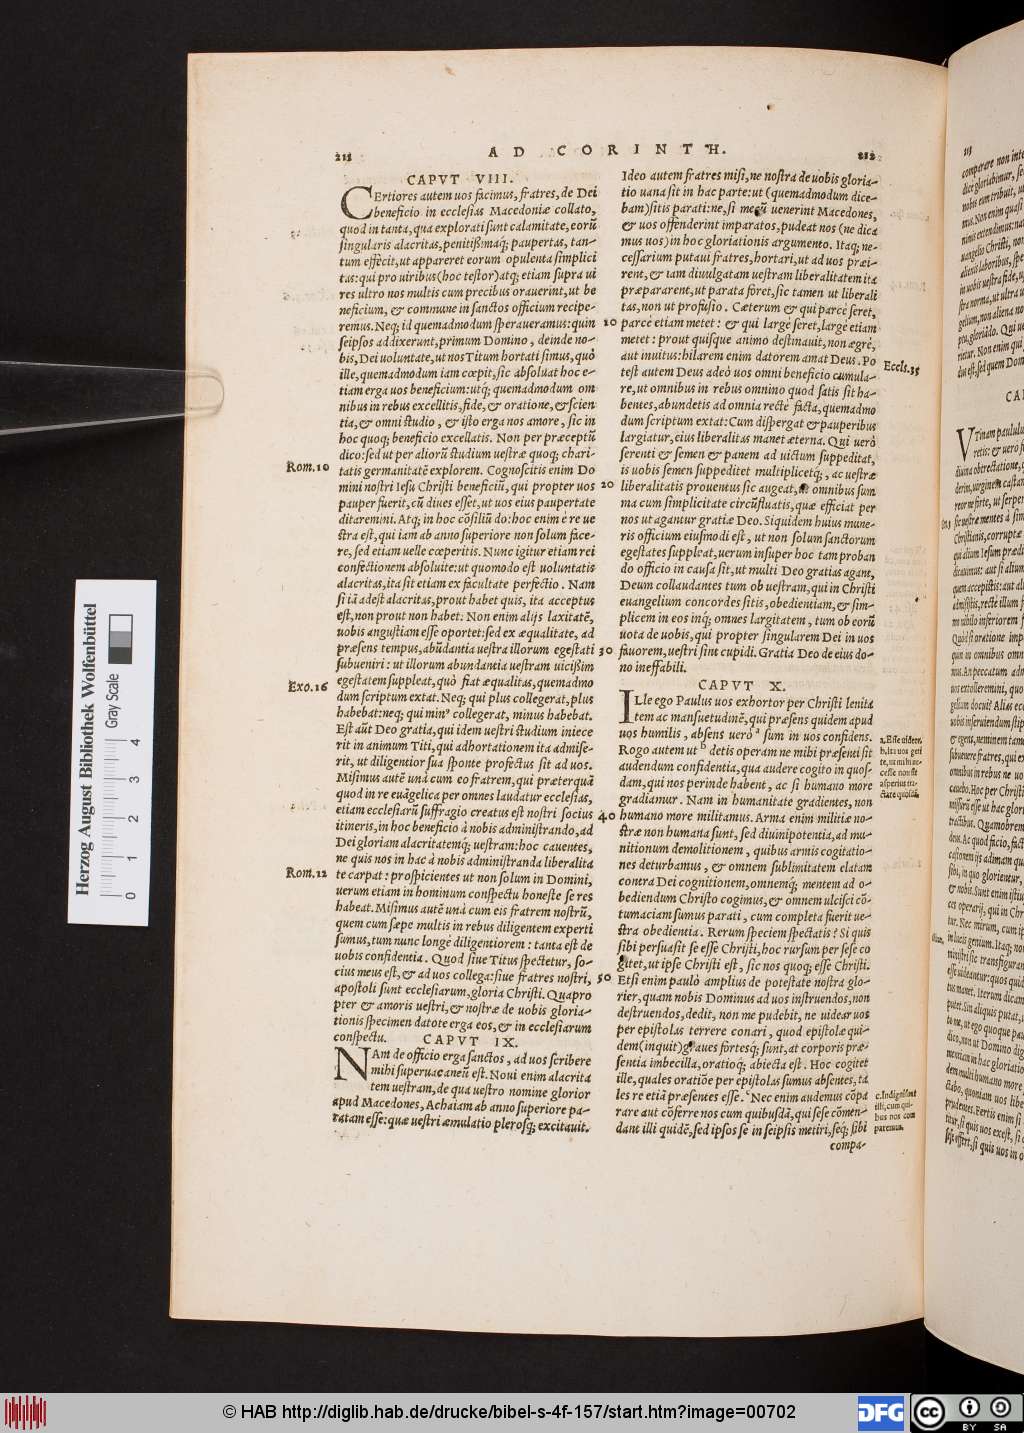 211
AD CORINTH.
212
CAPVT VIII.
CErtiores autem uos facimus, fratres, de Dei
beneficio in ecclesias Macedoniæ collato,
quod in tanta, qua explorati sunt calamitate, eorũ
singularis alacritas, penitißimaq; paupertas, tan-
tum effecit, ut appareret eorum opulenta simplici
tas: qui pro uiribus (hoc testor) atq; etiam supra ui
res ultro nos multis cum precibus orauerint, ut be
neficium, & commune in sanctos officium recipe-
remus. Neq; id quemadmodum speraueramus: quin
seipsos addixerunt, primum Domino, deinde no-
bis, Dei uoluntate, ut nos Titum hortati simus, quò
ille, quemadmodum iam cœpit, sic absoluat hoc e-
tiam erga uos beneficium: utq; quemadmodum om
nibus in rebus excellitis, fide, & oratione, & scien
tia, & omni studio, & isto erga nos amore, sic in
hoc quoq; beneficio excellatis. Non per præceptũ
dico: sed ut per aliorũ studium uestræ quoq; chari-
Rom. 10
tatis germanitatẽ explorem. Cognoscitis enim Do
mini nostri Iesu Christi beneficiũ, qui propter uos
pauper fuerit, cũ diues esset, ut uos eius paupertate
ditaremini. Atq; in hoc cõsiliũ do: hoc enim è re ue
stra est, qui iam ab anno superiore non solum face-
re, sed etiam uelle cœperitis. Nunc igitur etiam rei
confectionem absoluite: ut quomodo est uoluntatis
alacritas, ita sit etiam ex facultate perfectio. Nam
si iã adest alacritas, prout habet quis, ita acceptus
est, non prout non habet: Non enim alijs laxitatẽ,
uobis angustiam esse oportet: sed ex æqualitate, ad
præsens tempus, abũdantia uestra illorum egestati
subueniri: ut illorum abundantia uestram uicißim
Exo. 16
egestatem suppleat, quò fiat æqualitas, quemadmo
dum scriptum extat. Neq; qui plus collegerat, plus
habebat: neq; qui minꝰ collegerat, minus habebat.
Est aũt Deo gratia, qui idem uestri studium iniece
rit in animum Titi, qui adhortationem ita admise-
rit, ut diligentior sua sponte profectus sit ad uos.
Misimus autẽ unà cum eo fratrem, qui præterquã
quod in re euãgelica per omnes laudatur ecclesias,
etiam ecclesiarũ suffragio creatus est nostri socius
itineris, in hoc beneficio à nobis administrando, ad
Dei gloriam alacritatemq; uestram: hoc cauentes,
ne quis nos in hac à nobis administranda liberalita
Rom. 12
te carpat: prospicientes ut non solum in Domini,
uerum etiam in hominum conspectu honeste se res
habeat. Misimus autẽ unà cum eis fratrem nostrũ,
quem cum sæpe multis in rebus diligentem experti
sumus, tum nunc longè diligentiorem: tanta est de
uobis confidentia. Quod siue Titus spectetur, so-
cius meus est, & ad uos collega: siue fratres nostri,
apostoli sunt ecclesiarum, gloria Christi. Quapro
pter & amoris uestri, & nostræ de uobis gloria-
tionis specimen datote erga eos, & in ecclesiarum
conspectu. CAPVT IX.
NAm de officio erga sanctos, ad uos scribere
mihi superuacaneũ est. Noui enim alacrita
tem uestram, de qua uestro nomine glorior
apud Macedones, Achaiam ab anno superiore pa-
ratam esse: quæ uestri æmulatio plerosq; excitauit.
Ideo autem fratres misi, ne nostra de uobis gloria-
tio uana sit in hac parte: ut (quemadmodum dice-
bam) sitis parati: ne, si mecũ uenerint Macedones,
& uos offenderint imparatos, pudeat nos (ne dica
mus uos) in hoc gloriationis argumento. Itaq; ne-
cessarium putaui fratres, hortari, ut ad uos præi-
rent, & iam diuulgatam uestram liberalitatem ita
præpararent, ut parata foret, sic tamen ut liberali
tas, non ut profusio. Cæterum & qui parcè seret,
10 parcè etiam metet: & qui largè seret, largè etiam
metet: prout quisque animo destinauit, non ægrè,
aut inuitus: hilarem enim datorem amat Deus. Po
Eccls. 35
test autem Deus adeò uos omni beneficio cumula-
re, ut omnibus in rebus omnino quod satis sit ha-
bentes, abundetis ad omnia rectè facta, quemadmo
dum scriptum extat: Cum dispergat & pauperibus
largiatur, eius liberalitas manet æterna. Qui uerò
serenti & semen & panem ad uictum suppeditat,
is uobis semen suppeditet multiplicetq;, ac uestræ
20 liberalitatis prouentus sic augeat, ut omnibus sum
ma cum simplicitate circũfluatis, quæ efficiat per
nos ut agantur gratiæ Deo. Siquidem huius mune-
ris officium eiusmodi est, ut non solum sanctorum
egestates suppleat, uerum insuper hoc tam proban
do officio in causa sit, ut multi Deo gratias agant,
Deum collaudantes tum ob uestram, qui in Christi
euangelium concordes sitis, obedientiam, & sim-
plicem in eos inq; omnes largitatem, tum ob eorũ
uota de uobis, qui propter singularem Dei in uos
30 fauorem, uestri sint cupidi. Gratia Deo de eius do-
no ineffabili.
CAPVT X.
ILle ego Paulus uos exhortor per Christi lenita
tem ac mansuetudinẽ, qui præsens quidem apud
uos humilis, absens uerò a sum in uos confidens.
Rogo autem ut b detis operam ne mihi præsenti sit
audendum confidentia, qua audere cogito in quos-
dam, qui nos perinde habent, ac si humano more
gradiamur. Nam in humanitate gradientes, non
40 humano more militamus. Arma enim militiæ no-
stræ non humana sunt, sed diuinipotentia, ad mu-
nitionum demolitionem, quibus armis cogitatio-
nes deturbamus, & omnem sublimitatem elatam
contra Dei cognitionem, omnemq; mentem ad o-
bediendum Christo cogimus, & omnem ulcisci cõ-
tumaciam sumus parati, cum completa fuerit ue-
stra obedientia. Rerum speciem spectatis? Si quis
sibi persuasit se esse Christi, hoc rursum per sese co
gitet, ut ipse Christi est, sic nos quoq; esse Christi.
50 Etsi enim paulò amplius de potestate nostra glo-
rier, quam nobis Dominus ad uos instruendos, non
destruendos, dedit, non me pudebit, ne uidear uos
per epistolas terrere conari, quod epistolæ qui-
dem (inquit) graues fortesq; sunt, at corporis præ-
sentia imbecilla, oratioq; abiecta est. Hoc cogitet
ille, quales oratiõe per epistolas sumus absentes, ta
les re etiã præsentes esse. c Nec enim audemus cõpa
rare aut cõferre nos cum quibusdã, qui sese cõmen-
dant illi quidẽ, sed ipsos se in seipsis metiri, seq; sibi
compa-
a, Esse uidere.
b, Ita uos geri
te, ut mihi ne-
cesse non sit
asperius tra-
ctare quosdã.
c. Indignissint
illi, cum qui-
bus nos com
paremus.
213
Herzog August Bibliothek Wolfenbüttel
Gray Scale
0 1 2 3 4
© HAB http://diglib.hab.de/drucke/bibel-s-4f-157/start.htm?image=00702
DFG
CC BY SA